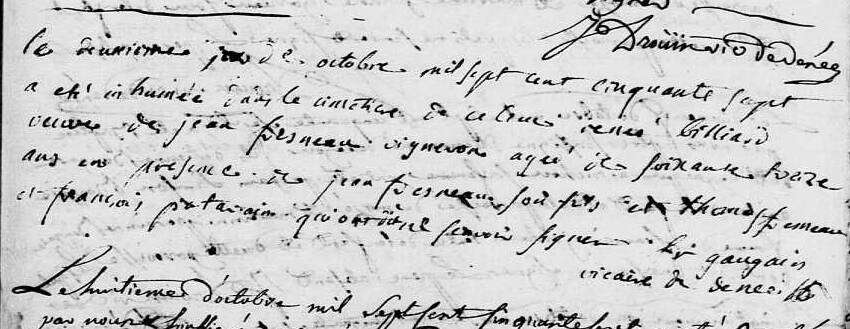 signer
J Drouin vic de denée
le deuxieme jour de octobre mil sept cent cinquante sept
a eté inhumée dans le cimetiere de ce lieu renée billiard
veuve de jean fresneau vigneron agée de soixante treize
ans en presence de jean fresneau son fils et thomas fresneau
et françois qui ont dit ne sçavoir signer
hr gaugain
vicaire de denée
Le huitieme d'octobre mil sept cent cinquante sept
par nous